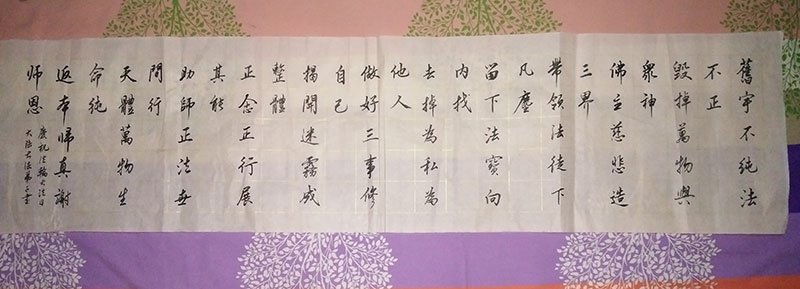 舊宇不純法
不正
毀掉萬物與
眾神
佛主慈悲造
三界
帶領法徒下
凡塵
留下法寶向
內找
去掉為私為
他人
做好三事修
自己
揭開迷霧成
整體
正念正行展
其能
助師正法世
間行
天體萬物生
命純
返本歸真謝
師恩
慶祝法輪大法日
大陸大法弟子書